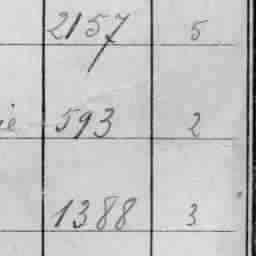 2157 5
593 2
1388 3